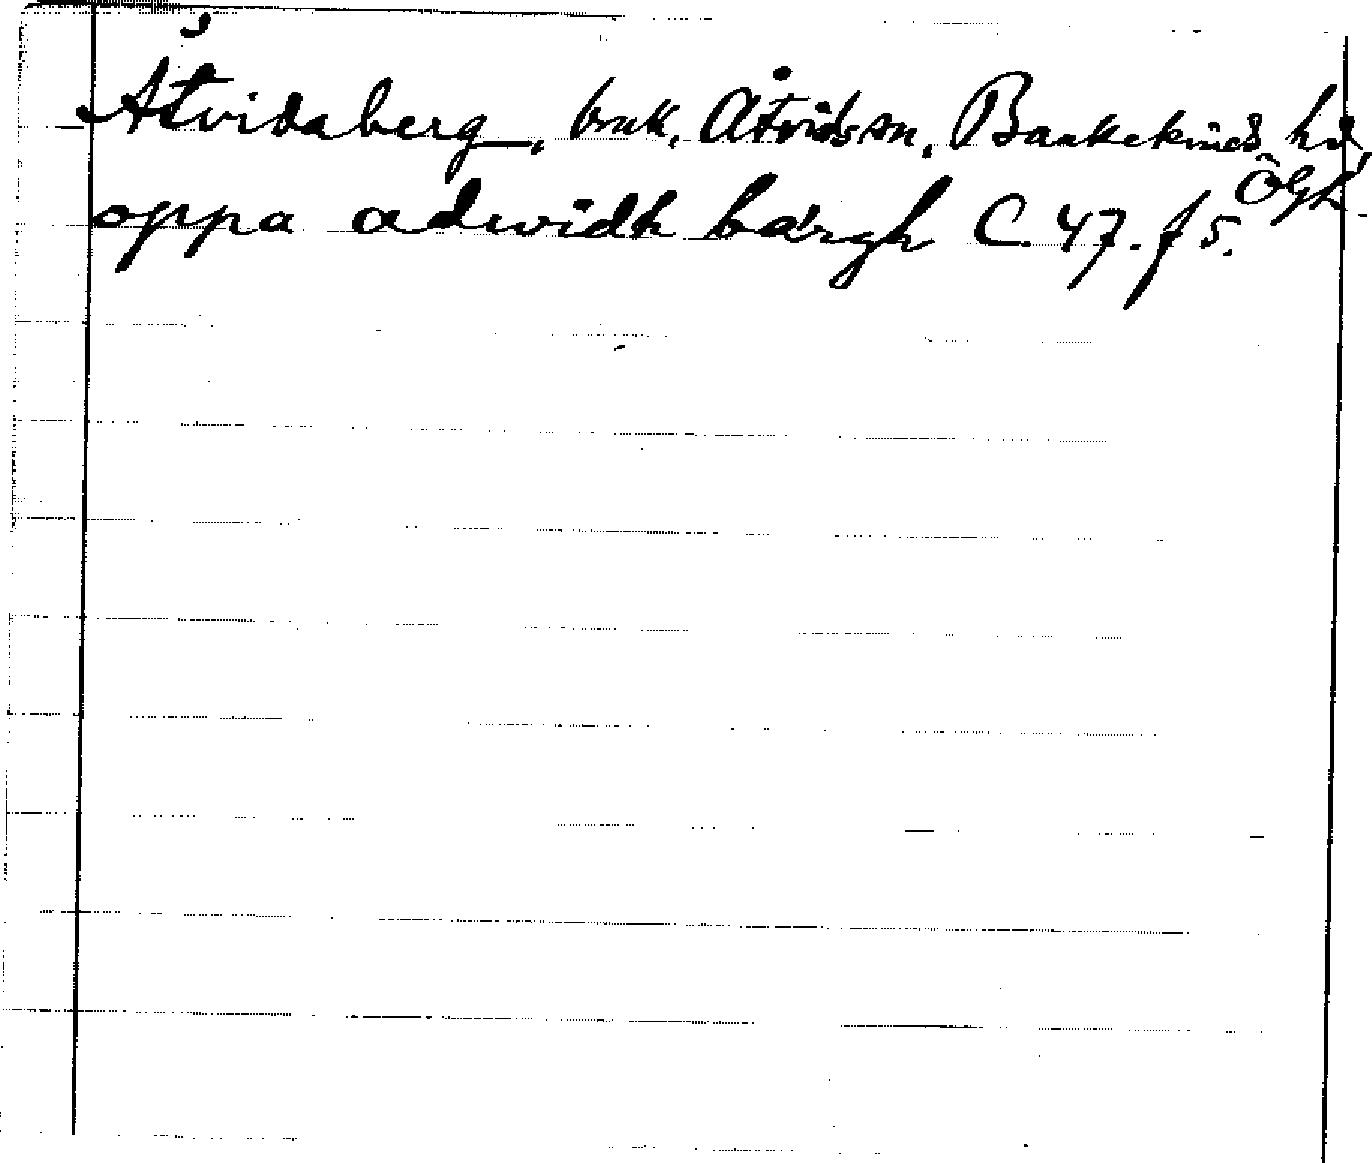 Åtvidaberg, bruk, Åtvids sn, Bankekinds hd,
oppa adwidh bärgh C 47. f 5. Ögl.